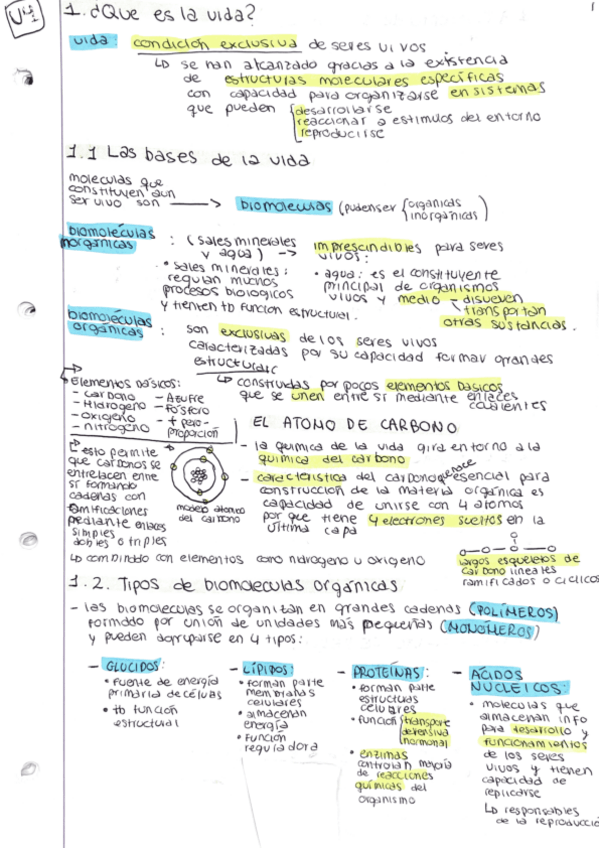 1. ¿Que es la vida?
1
vida: condición exclusiva de seres vivos
↳ se han alcanzado gracias a la existencia
de estructuras moleculares específicas
con capacidad para organizarse en sistemas
que pueden desarrollarse
reaccionar a estimulos del entorno
reproducirse
1.1 Las bases de la vida
moleculas que
constituyen a un
ser vivo son → biomoleculas (pueden ser orgánicas
inorgánicas)
biomoléculas
inorgánicas : (sales minerales
y agua) -> imprescindibles para seres
vivos:
• sales minerales:
regulan muchos
procesos biologicos
y tienen tb funcion estructural.
• agua: es el constituyente
principal de organismos
vivos y medio - disuelven
transportan
otras sustancias.
biomoléculas
orgánicas : son exclusivas de los seres vivos
caracterizadas por su capacidad formar grandes
estructuras
↳ construidas por pocos elementos basicos
que se unen entre sí mediante enlaces
covalentes
Elementos básicos:
- Carbono
- Hidrogeno
- Oxigeno
- nitrógeno
- Azufre
- Fosforo
- + pero -
proporción
EL ATOMO DE CARBONO
→ esto permite
que carbonos se
entrelacen entre
sí formando
cadenas con
ramificaciones
mediante enlaces
simples
dobles o triples
modelo atomico
del carbono
- la quimica de la vida gira entorno a la
química del carbono
- caracteristica del carbono q le hace esencial para
construccion de la materia orgánica es
capacidad de unirse con 4 atomos
por que tiene 4 electrones sueltos en la
última capa
↳ combinado con elementos como hidrogeno u oxigeno
largos esqueletos de
carbono lineales
ramificados o ciclicos
1.2. Tipos de biomoleculas orgánicas
- las biomoleculas se organizan en grandes cadenas (POLÍMEROS)
formado por unión de unidades más pequeñas (MONÓMEROS)
y pueden agruparse en 4 tipos:
- GLUCIDOS:
• fuente de energía
primaria de células
• tb función
estructural
- LÍPIDOS:
• forman parte
membranas
celulares
• almacenan
energía
• función
reguladora
- PROTEÍNAS:
• forman parte
estructuras
celulares
• función transporte
defensiva
hormonal
• enzimas
controlan mayoría
de reacciones
químicas del
organismo
- ÁCIDOS
NUCLEICOS:
• moleculas que
almacenan info
para desarrollo y
funcionamientos
de los seres
vivos y tienen
capacidad de
replicarse
↳ responsables
de la reproducció